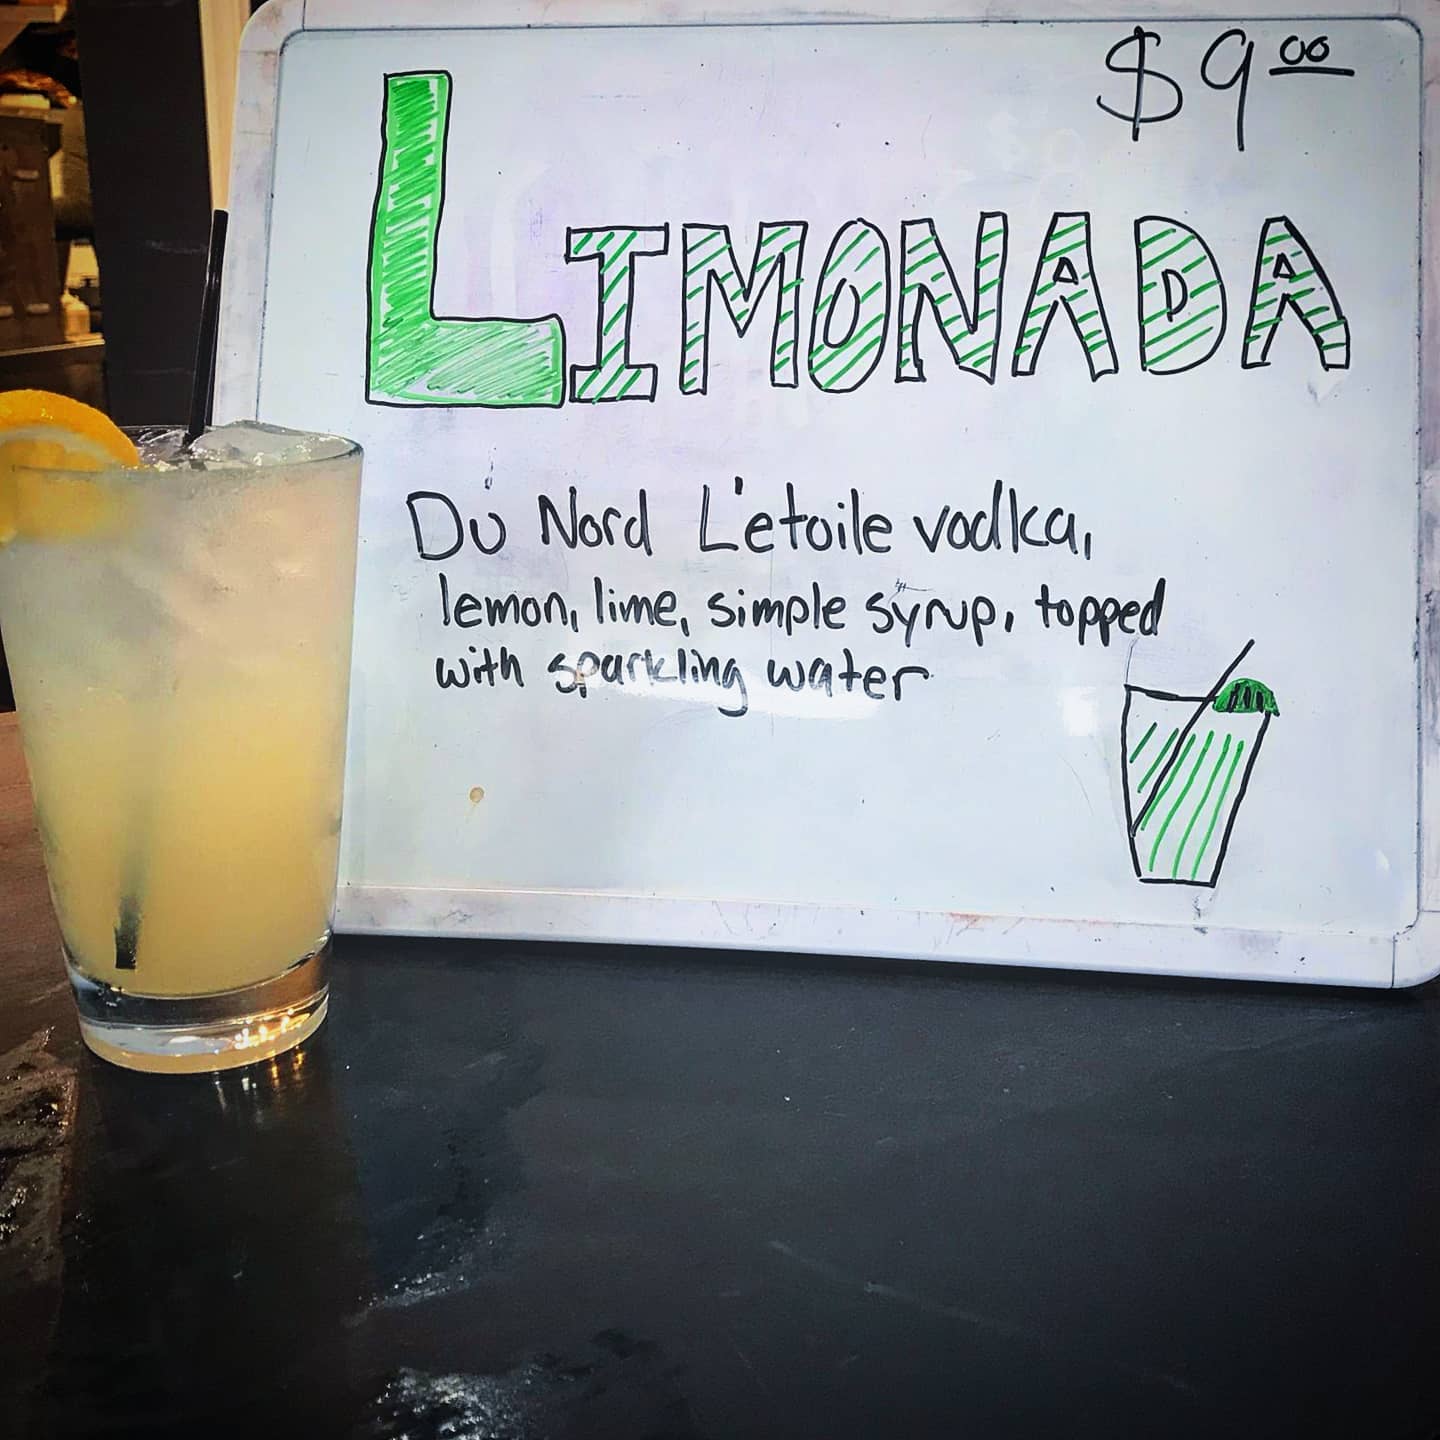 $9.00
LIMONADA
Du Nord L'etoile vodka,
lemon, lime, simple syrup, topped
with sparkling water